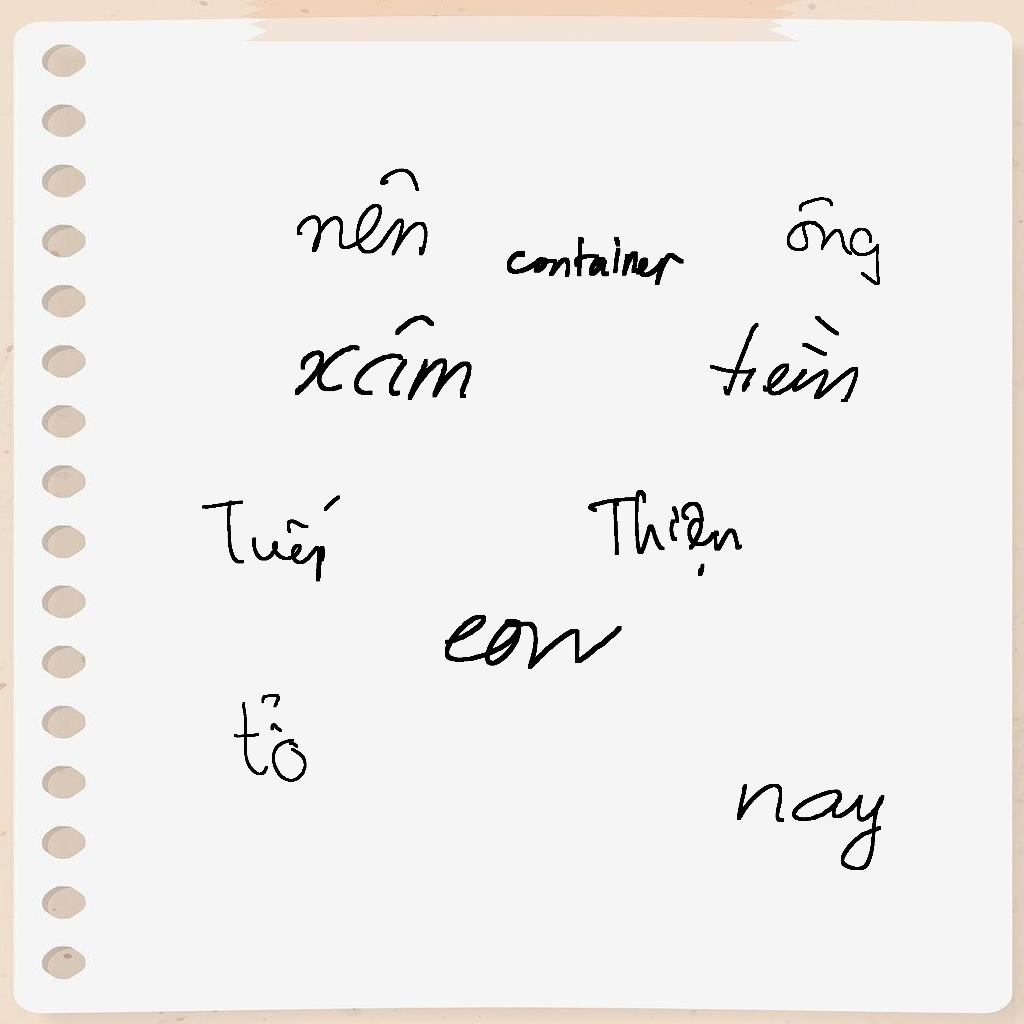 nên container ông
xâm tiền
Thiện
con
tổ
nay